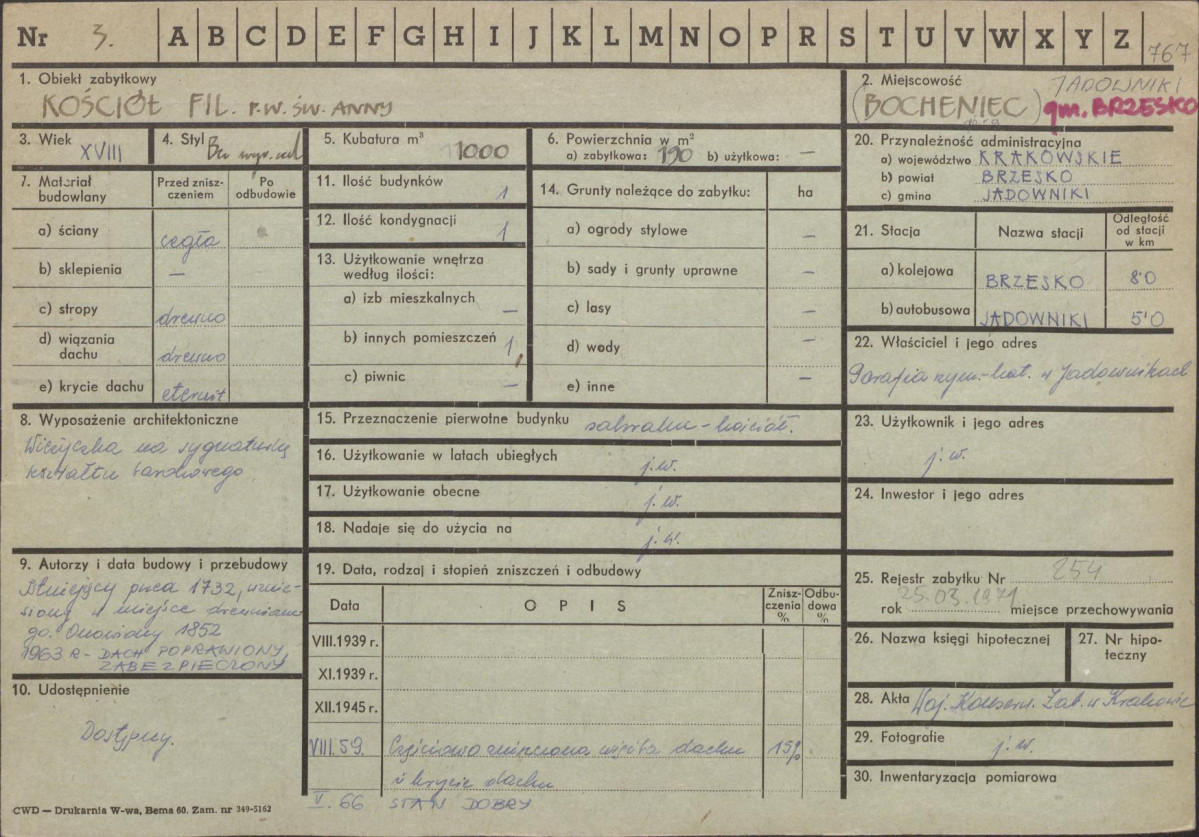 Nr 3. A B C D E F G H I J K L M N O P R S T U V W X Y Z 767
1. Obiekt zabytkowy
KOŚCIÓŁ FIL. P.W. ŚW. ANNY
2. Miejscowość JADOWNIKI
(BOCHENIEC) gm. BRZESKO
3. Wiek XVIII
4. Styl
5. Kubatura m³ 1000
6. Powierzchnia w m²
a) zabytkowa: 190 b) użytkowa: —
7. Materiał budowlany
Przed zniszczeniem
Po odbudowie
a) ściany cegła
b) sklepienia —
c) stropy drewno
d) wiązania dachu drewno
e) krycie dachu eternit
8. Wyposażenie architektoniczne
Wieżyczka na sygnaturkę
kształtu barokowego
9. Autorzy i data budowy i przebudowy
Istniejący przed 1732, wznie-
siony w miejsce drewniane-
go. Odnowiony 1852
1963 R - DACH POPRAWIONY,
ZABEZPIECZONY
10. Udostępnienie
Dostępny.
11. Ilość budynków 1
12. Ilość kondygnacji 1
13. Użytkowanie wnętrza według ilości:
a) izb mieszkalnych —
b) innych pomieszczeń 1
c) piwnic —
14. Grunty należące do zabytku: ha
a) ogrody stylowe —
b) sady i grunty uprawne —
c) lasy —
d) wody —
e) inne —
15. Przeznaczenie pierwotne budynku sakralne - kościół.
16. Użytkowanie w latach ubiegłych j.w.
17. Użytkowanie obecne j.w.
18. Nadaje się do użycia na j.w.
19. Data, rodzaj i stopień zniszczeń i odbudowy
Data OPIS Zniszczenia % Odbudowa %
VIII.1939 r.
XI.1939 r.
XII.1945 r.
VIII.59. Częściowo zniszczona więźba dachu 15%
i krycie dachu
V. 66 STAN DOBRY
20. Przynależność administracyjna
a) województwo KRAKOWSKIE
b) powiat BRZESKO
c) gmina JADOWNIKI
21. Stacja Nazwa stacji Odległość od stacji w km
a) kolejowa BRZESKO 8'0
b) autobusowa JADOWNIKI 5'0
22. Właściciel i jego adres
Parafia rzym.-kat. w Jadownikach
23. Użytkownik i jego adres
j.w.
24. Inwestor i jego adres
25. Rejestr zabytku Nr 254
rok 25.03.1971 miejsce przechowywania
26. Nazwa księgi hipotecznej
27. Nr hipoteczny
28. Akta Woj. Konserw. Zab. w Krakowie
29. Fotografie j.w.
30. Inwentaryzacja pomiarowa
CWD — Drukarnia W-wa, Bema 60. Zam. nr 349-5162